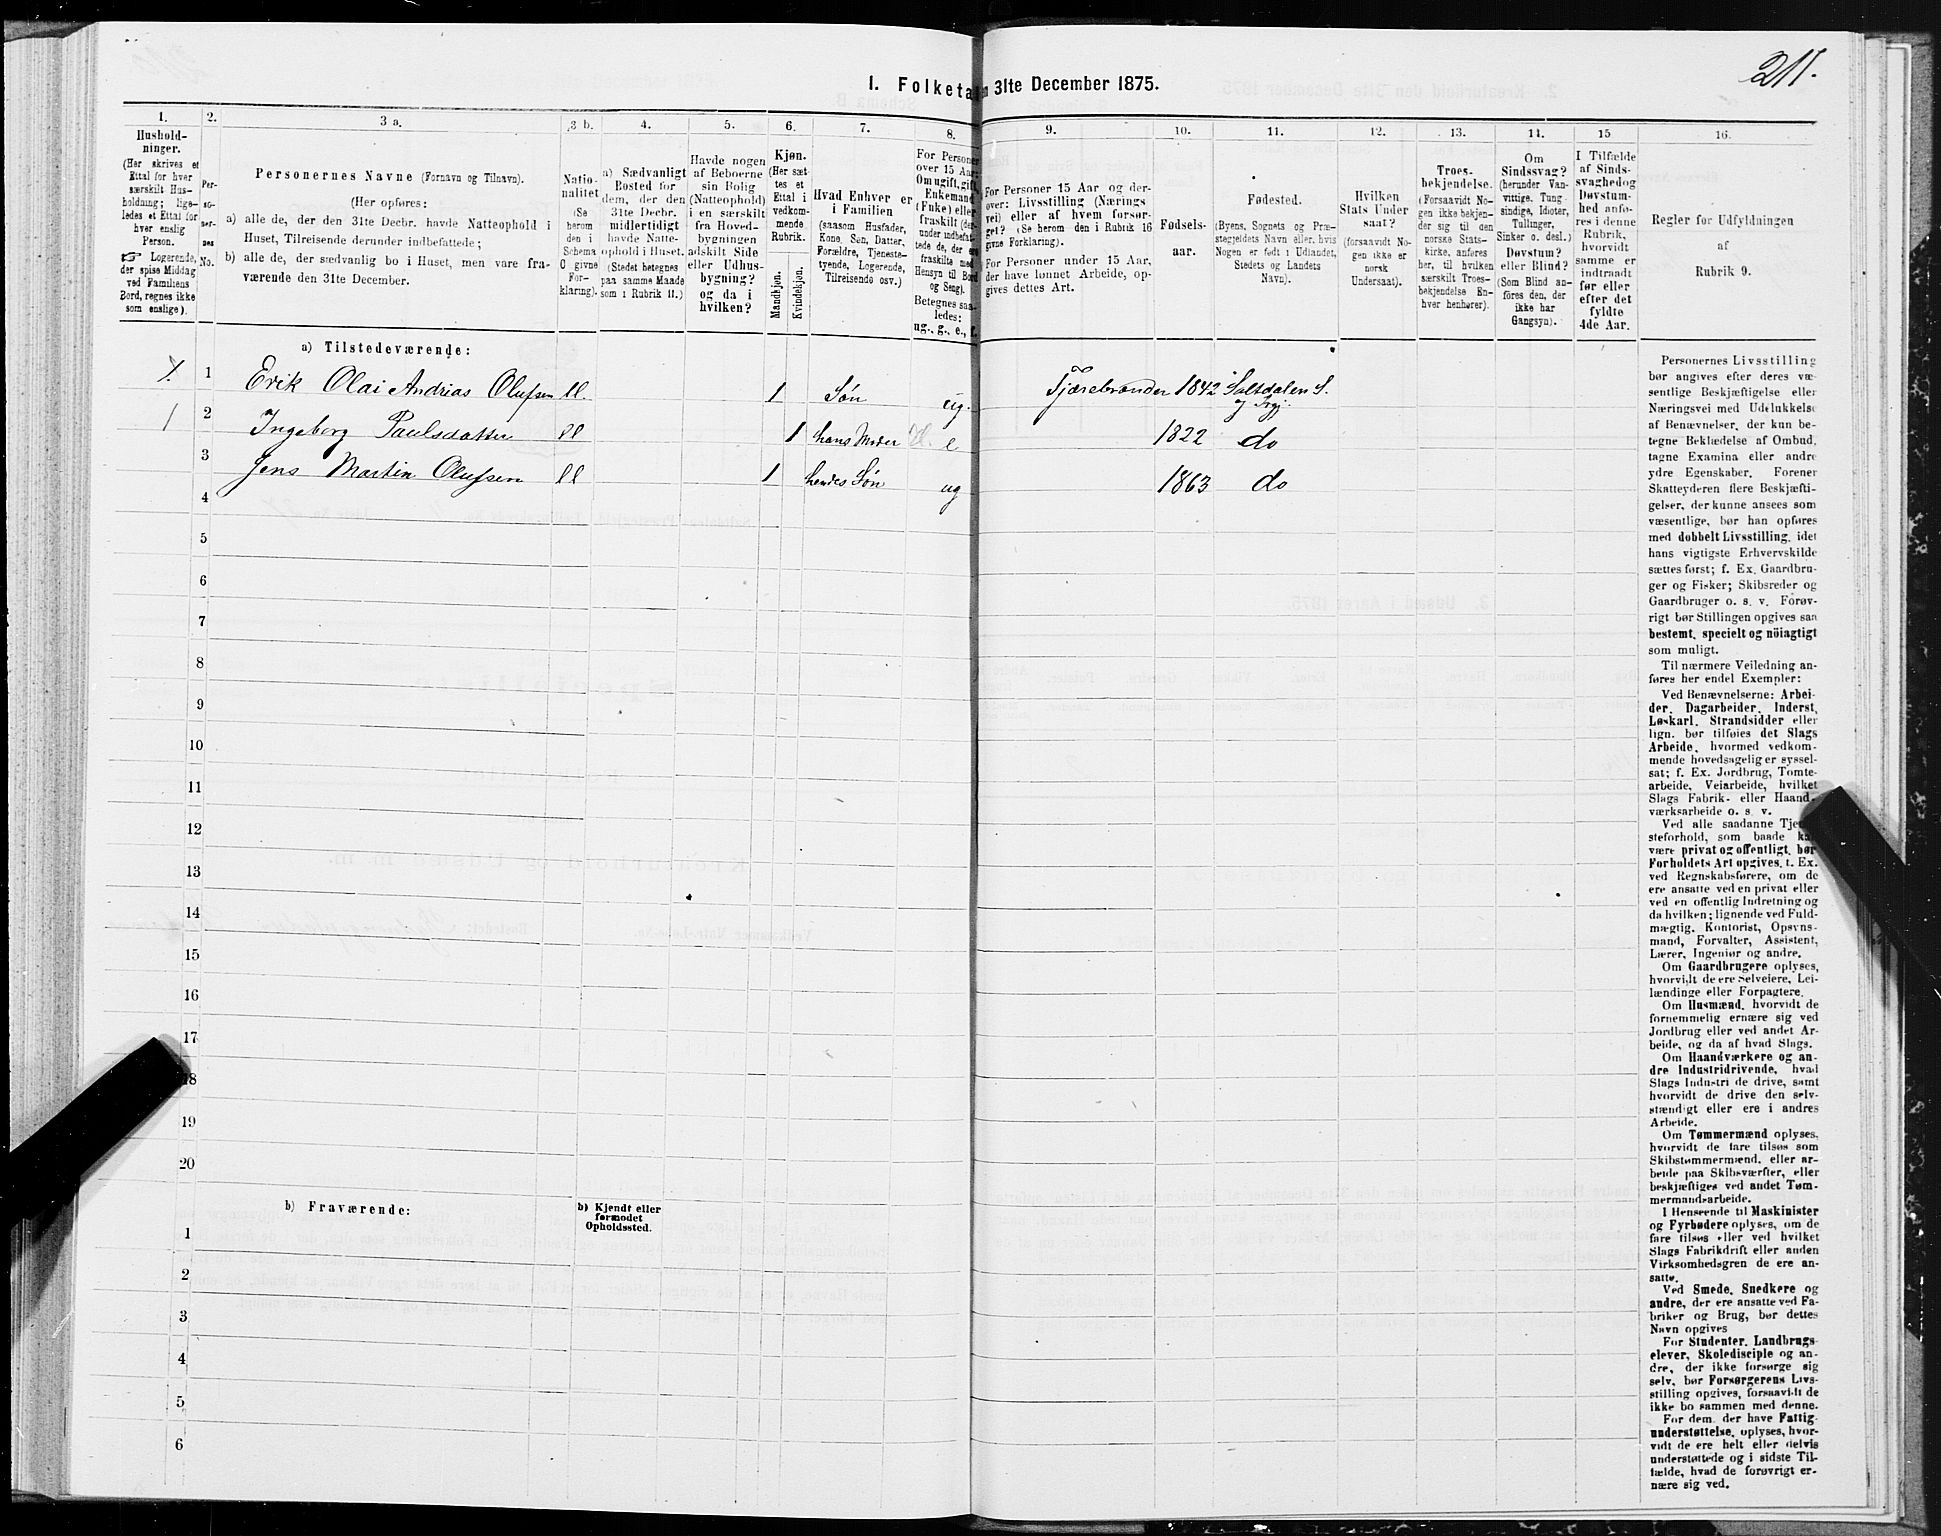 211.
I. Folketa
n 31te December 1875.
1.
2.
3 a.
3 b.
4.
5.
6.
7.
8.
9.
10.
11.
12.
13.
14.
15
16.
Hushold-
ninger.
(Her skrives et
Ettal for hver
særskilt Hus-
holdning; lige-
ledes et Ettal for
hver enslig
Person.
☞ Logerende,
der spise Middag
ved Familiens
Bord, regnes ikke
som enslige).
Per-
so-
ner-
nes
No.
Personernes Navne (Fornavn og Tilnavn).
(Her opføres:
a) alle de, der den 31te Decbr. havde Natteophold i
Huset, Tilreisende derunder indbefattede;
b) alle de, der sædvanlig bo i Huset, men vare fra-
værende den 31te December.
Natio-
nalitet
(Se
herom
den i
Schema
O givne
For-
klaring).
a) Sædvanligt
Bosted for
dem, der den
31te Decbr.
midlertidigt
havde Natte-
ophold i Huset.
(Stedet betegnes
paa samme Maade
som i Rubrik 11.)
Havde nogen
af Beboerne
sin Bolig
(Natteophold)
i en særskilt
fra Hoved-
bygningen
adskilt Side
eller Udhus-
bygning?
og da i
hvilken?
Kjøn.
(Her sæt-
tes et
Ettal i
vedkom-
mende
Rubrik.
Mandkjøn.
Kvindekjøn.
Hvad Enhver er
i Familien
(saasom Husfader,
Kone, Søn, Datter,
Forældre, Tjeneste-
tyende, Logerende,
Tilreisende osv.)
For Personer
over 15 Aar:
Om ugift, gift,
Enkemand
(Enke) eller
fraskilt (der-
under indbefat-
tede de, der ere
fraskilte med
Hensyn til Bord
og Seng).
Betegnes saa-
ledes:
ug., g., e., f.
For Personer 15 Aar og der-
over: Livsstilling (Nærings
vei) eller af hvem forsør-
get? (Se herom den i Rubrik 16
givne Forklaring).
For Personer under 15 Aar,
der have lønnet Arbeide, op-
gives dettes Art.
Fødsels-
aar.
Fødested.
(Byens, Sognets og Præ-
stegjeldets Navn eller, hvis
Nogen er født i Udlandet,
Stedets og Landets
Navn).
Hvilken
Stats Under
saat?
(forsaavidt No-
gen ikke er
norsk
Undersaat).
Troes-
bekjendelse.
(Forsaavidt No-
gen ikke bekjen-
der sig til den
norske Stats-
kirke, anføres
her, til hvilken
særskilt Troes-
bekjendelse En-
hver henhører).
Om
Sindssvag?
(herunder Van-
vittige, Tung-
sindige, Idioter,
Tullinger,
Sinker o. desl.)
Døvstum?
eller Blind?
(Som Blind an-
føres den, der
ikke har
Gangsyn).
I Tilfælde
af Sinds-
svaghed og
Døvstum-
hed anfø-
res i denne
Rubrik,
hvorvidt
samme er
indtraadt
før eller
efter det
fyldte
4de Aar.
Regler for Udfyldningen
af
Rubrik 9.
a) Tilstedeværende:
1 Erik Olai Andrias Olufsen 1 Søn ug. Tjærebrænder 1842 Saltdalen S.
og Prgj.
1 2 Ingeborg Paulsdatter 1 hans Moder e 1822 do
3 Jens Martin Olufsen 1 hendes Søn ug 1863 do
4
5
6
7
8
9
10
11
12
13
14
15
16
17
18
19
20
b) Fraværende:
b) Kjendt eller
formodet
Opholdssted.
1
2
3
4
5
6
Personernes Livsstilling
bør angives efter deres væ-
sentlige Beskjæftigelse eller
Næringsvei med Udelukkelse
af Benævnelser, der kun be-
tegne Beklædelse af Ombud,
tagne Examina eller andre
ydre Egenskaber. Forener
Skatteyderen flere Beskjæfti-
gelser, der kunne ansees som
væsentlige, bør han opføres
med dobbelt Livsstilling, idet
hans vigtigste Erhvervskilde
sættes først; f. Ex. Gaardbru-
ger og Fisker; Skibsreder og
Gaardbruger o. s. v. Forøv-
rigt bør Stillingen opgives saa
bestemt, specielt og nöiagtigt
som muligt.
Til nærmere Veiledning an-
føres her endel Exempler:
Ved Benævnelserne: Arbei-
der, Dagarbeider, Inderst,
Løskarl, Strandsidder eller
lign. bør tilføies det Slags
Arbeide, hvormed vedkom-
mende hovedsagelig er syssel-
sat; f. Ex. Jordbrug, Tomte-
arbeide, Veiarbeide, hvilket
Slags Fabrik- eller Haand-
værksarbeide o. s. v.
Ved alle saadanne Tje
steforhold, som baade k
være privat og offentligt, bør
Forholdets Art opgives, t. Ex.
ved Regnskabsførere, om de
ere ansatte ved en privat eller
ved en offentlig Indretning og
da hvilken; lignende ved Fuld-
mægtig, Kontorist, Opsyns-
mand, Forvalter, Assistent,
Lærer, Ingeniør og andre.
Om Gaardbrugere oplyses,
hvorvidt de ere Selveiere, Lei-
lændinge eller Forpagtere.
Om Husmænd, hvorvidt de
fornemmelig ernære sig ved
Jordbrug eller ved andet Ar-
beide, og da af hvad Slags.
Om Haandværkere og an-
dre Industridrivende, hvad
Slags Industri de drive, samt
hvorvidt de drive den selv-
stændigt eller ere i andres
Arbeide.
Om Tømmermænd oplyses,
hvorvidt de fare tilsøs som
Skibstømmermænd, eller ar-
beide paa Skibsværfter, eller
beskjæftiges ved andet Tøm-
mermandsarbeide.
I Henseende til Maskinister
og Fyrbødere oplyses, om de
fare tilsøs eller ved hvilket
Slags Fabrikdrift eller anden
Virksomhedsgren de ere an-
satte.
Ved Smede, Snedkere og
andre, der ere ansatte ved Fa-
briker og Brug, bør dettes
Navn opgives
For Studenter, Landbrugs-
elever, Skoledisciple og an-
dre, der ikke forsørge sig
selv, bør Forsørgerens Livs-
stilling opgives, forsaavidt de
ikke bo sammen med denne.
For dem, der have Fattig-
understøttelse, oplyses, hvor-
vidt de ere helt eller delvis
understøttede og i sidste Til-
fælde, hvad de forøvrigt er-
nære sig ved.